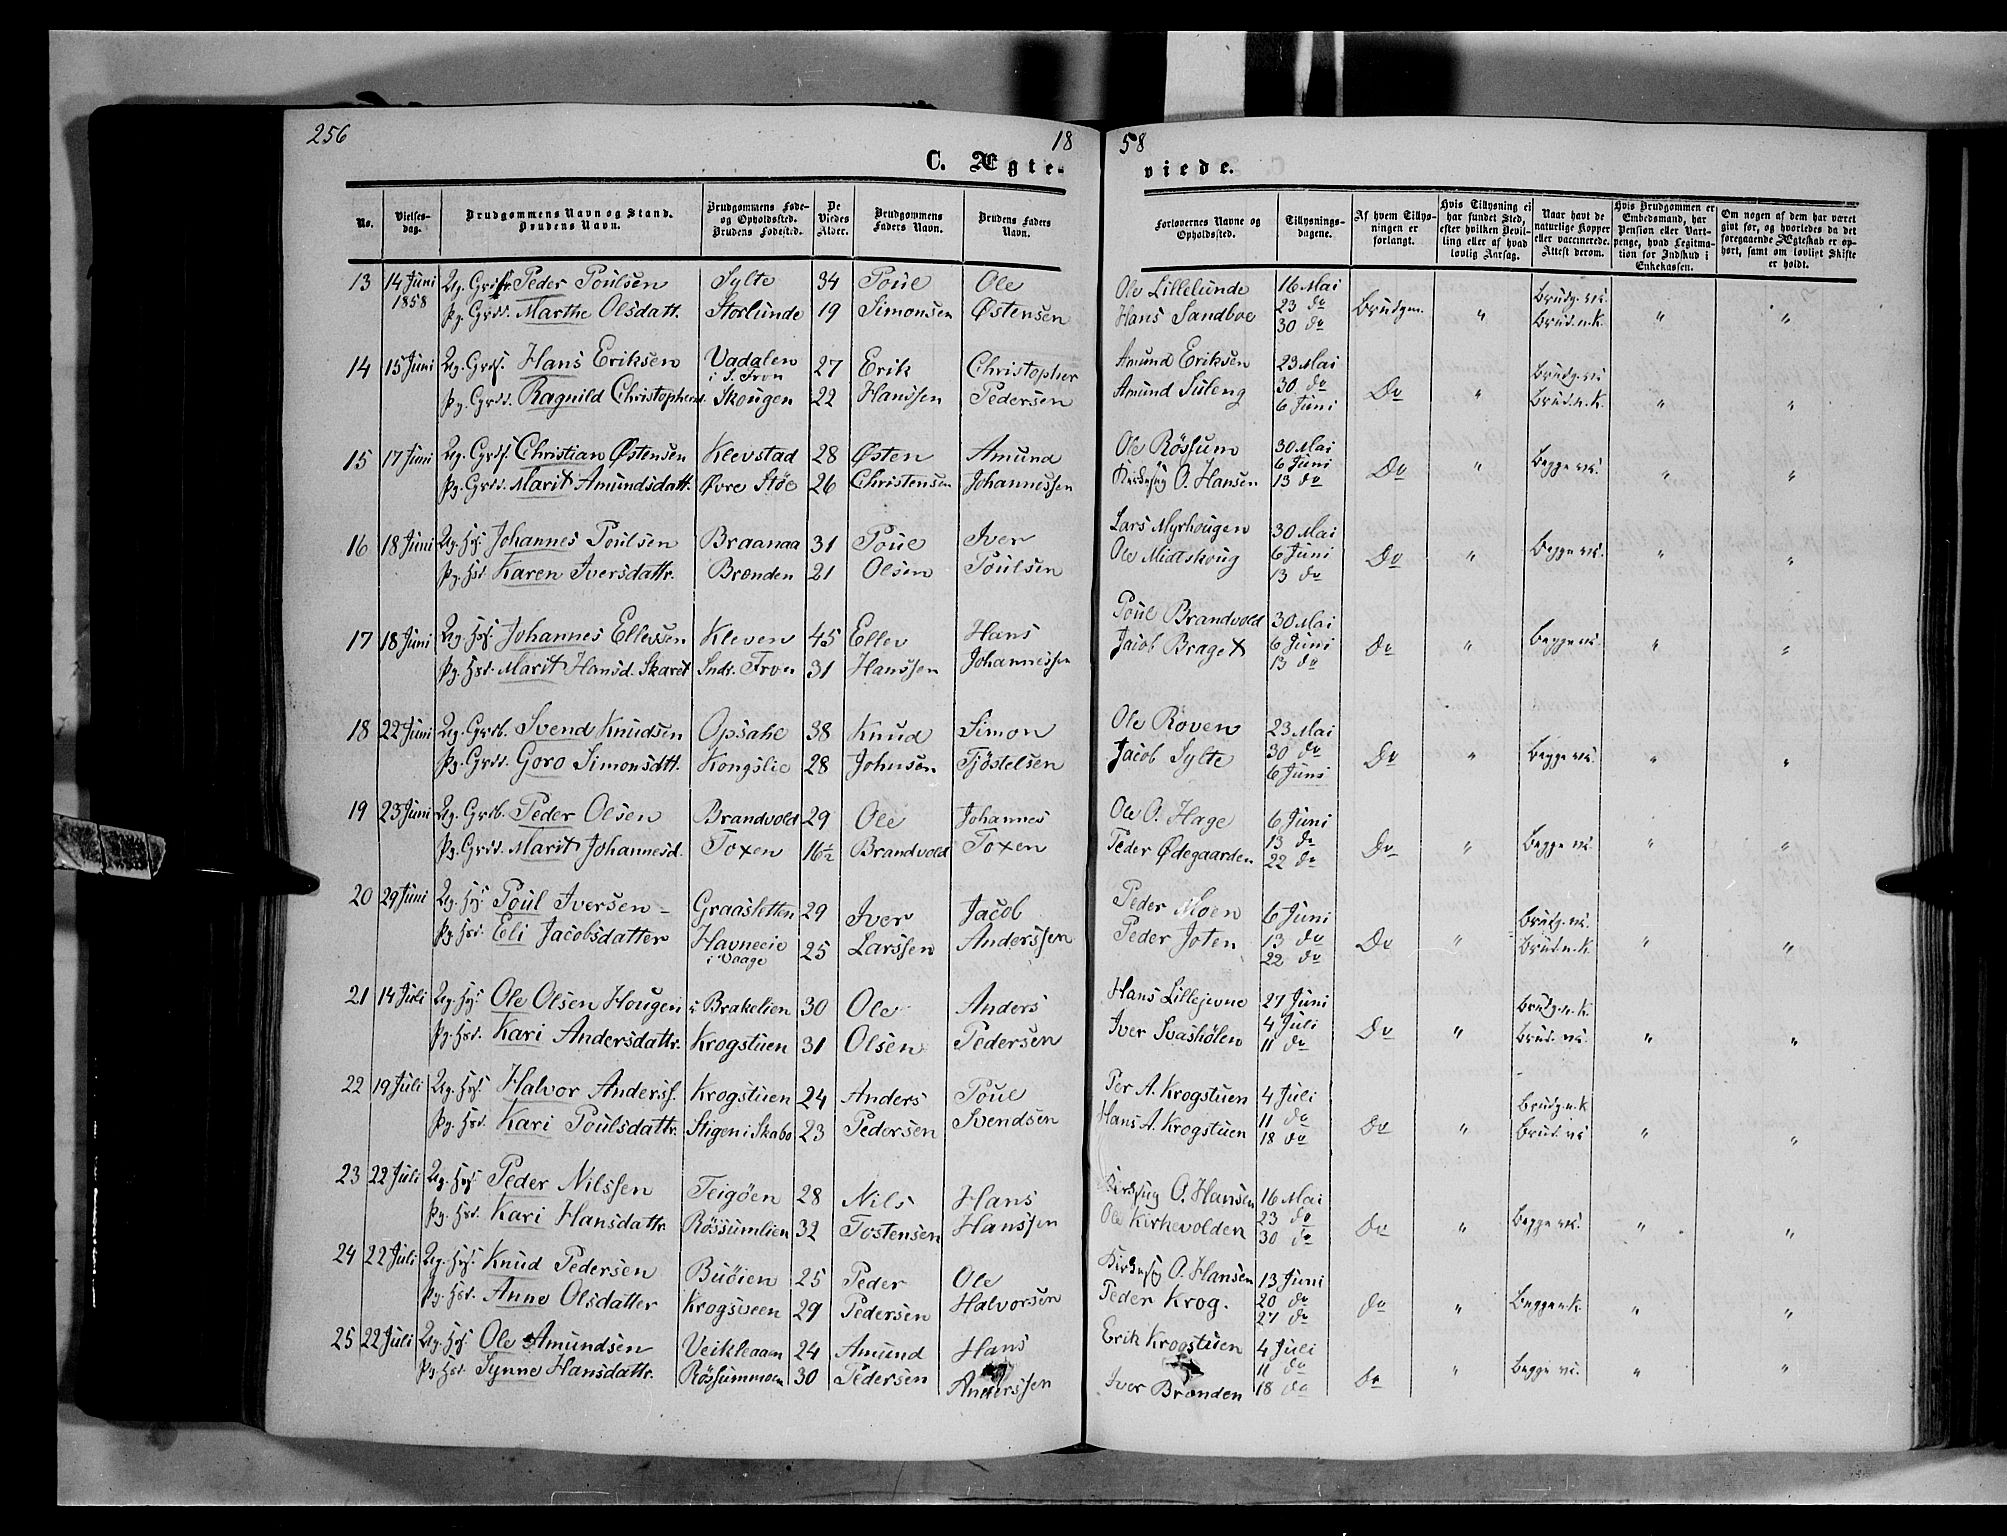 256
18
58
C. Ægte-
viede.
No.
Vielses-
dag.
Brudgommens Navn og Stand.
Brudens Navn.
Brudgommens Føde-
og Opholdssted.
Brudens Fødested.
De
Viedes
Alder.
Brudgommens
Faders Navn.
Brudens Faders
Navn.
Forlovernes Navne og
Opholdssted.
Tillysnings-
dagene.
Af hvem Tillys-
ningen er
forlangt.
Hvis Tillysning ei
har fundet Sted,
efter hvilken Bevil-
ling eller af hvad
lovlig Aarsag.
Naar havt de
naturlige Kopper
eller vaccinerede.
Attest derom.
Hvis Brudgommen er
Embedsmand, har
Pension eller Vart-
penge, hvad Legitima-
tion for Indskud i
Enkekassen.
Om nogen af dem har været
gift før, og hvorledes da det
foregaaende Ægteskab er op-
hørt, samt om lovligt Skifte
er holdt.
13 14 Juni Ug. Peder Poulsen Sylte 34 Poul Ole Ole Lillelunde 16 Mai
1858 Pg. Grdd. Marthe Olsdatt. Storlunde 19 Simonsen Østensen Hans Sandboe 23 do 30 do Brudgm. " Brudg. vk. Brud. n.K. " "
14 15 Juni Ug. Grds. Hans Eriksen Vadalen i S. Fron 27 Erik Christopher Amund Eriksen 23 Mai
Pg. Grdd. Ragnild Christophersd. Skougen 22 Hanssen Pedersen Amund Suleng 30 do 6 Juni Do " Brudg. vk. Brud. n.K. " "
15 17 Juni Ug. Grds. Christian Østensen Klevstad 28 Østen Amund Ole Røssum 30 Mai
Pg. Grdd. Marit Amundsdatt. Øvre Støe 26 Christensen Johannessen O. Hansen 6 Juni 13 do Do " Begge vk. " "
16 18 Juni Ug. Hs. Johannes Poulsen Braanaa 31 Poul Iver Lars Myrhougen 30 Mai
Pg. Hsd. Karen Iversdattr. Brænden 21 Olsen Poulsen Ole Midtskoug 6 Juni 13 do Do " Begge vk. " "
17 18 Juni Ug. Hs. Johannes Ellevsen Kleven 45 Ellev Hans Poul Brandvold 30 Mai
Pg. Hsd. Marit Hansd. Skaret Sndr. Fron 31 Hanssen Johannessen Jacob Braget 6 Juni 13 do Do " Begge vk. " "
18 22 Juni Ug. Grdb. Svend Knudsen Opsahl 38 Knud Simon Ole Røven 23 Mai
Pg. Grdd. Goro Simonsdtt. Kongslie 28 Johnsen Tjøstelsen Jacob Sylte 30 do 6 Juni Do " Begge vk. " "
19 23 Juni Ug. Grdb. Peder Olsen Brandvold 29 Ole Johannes Ole O. Hage 6 Juni
Pg. Grdd. Marit Johannesd. Toxen 16½ Brandvold Toxen Peder Ødegaarden 13 do 22 do Do " Begge vk. " "
20 29 Juni Ug. Hs. Poul Iversen Graasletten 29 Iver Jacob Peder Moen 6 Juni
Pg. Hsd. Eli Jacobsdatter Havneeie i Vaage 25 Larssen Anderssen Peder Joten 13 do 22 do Do " Brudg. vk. Brud n.K. " "
21 14 Juli Ug. Hs. Ole Olsen Hougen i Brakelien 30 Ole Anders Hans Lillejevne 27 Juni
Pg. Hsd. Kari Andersdattr. Krogstuen 31 Olsen Pedersen Iver Svashølen 4 Juli 11 do Do " Brudg. n.K. Brud. vk. " "
22 19 Juli Ug. Hs. Halvor Anderss. Krogstuen 24 Anders Poul Per A. Krogstuen 4 Juli
Pg. Hsd. Kari Poulsdattr. Stigen i Skabo 23 Pedersen Svendsen Hans A. Krogstuen 11 do 18 do Do " Brudg. n.K Brud. vk " "
23 22 Juli Ug. Hs. Peder Nilssen Teigøen 28 Nils Hans O. Hansen 16 Mai
Pg. Hsd. Kari Hansdattr. Røssumlien 32 Tostensen Hanssen Ole Kirkevolden 23 do 30 do Do " Begge vk. " "
24 22 Juli Ug. Hs. Knud Pedersen Buøien 25 Peder Ole O. Hansen 13 Juni
Pg. Hsd. Anne Olsdatter Krogsveen 29 Pedersen Halvorsen Peder Krog. 20 do 27 do Do " Begge n.K. " "
25 22 Juli Ug. Hs. Ole Amundsen Veikleaaen 24 Amund Hans Erik Krogstuen 4 Juli
Pg. Hsd. Synne Hansdattr. Røssummoen 30 Pedersen Anderssen Iver Brænden 11 do 18 do Do " Begge vk. " "